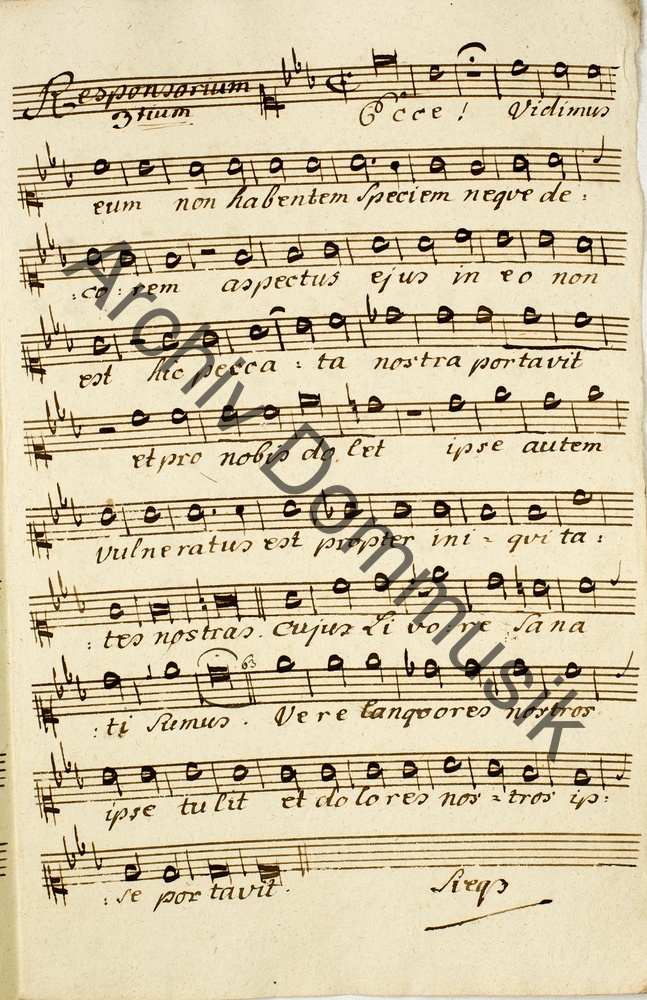 Responsorium
3tium
Ecce! Vidimus
eum non habentem speciem neque de:
:co:rem aspectus ejus in eo non
est hic pecca:ta nostra portavit
et pro nobis dolet ipse autem
vulneratus est propter ini-quita:
:tes nostras. Cujus Livo:re sana
:ti sumus. Vere languores nostros
63
ipse tulit et dolores nos-tros ip:
:se portavit.
Archiv Dommusik